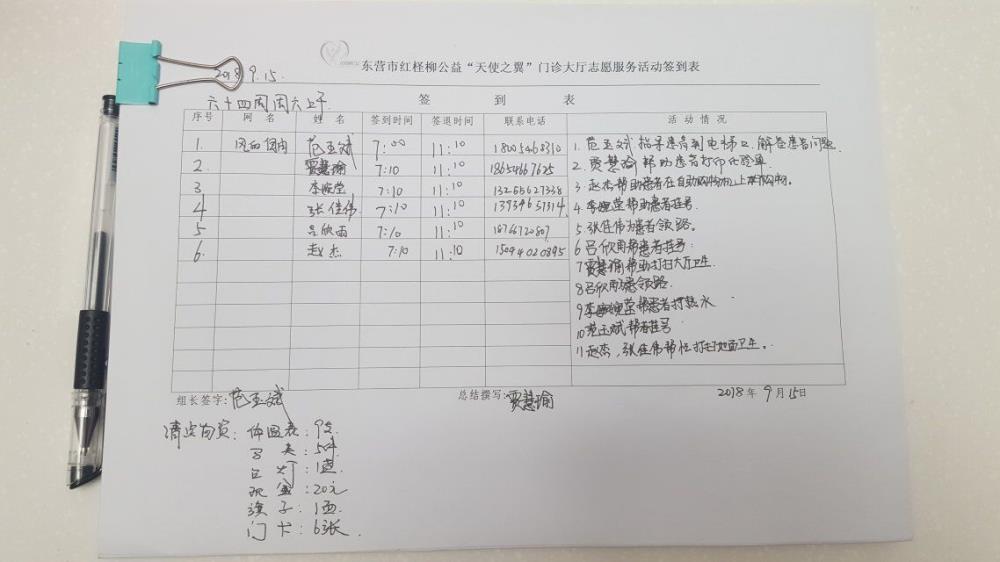 东营市红柽柳公益“天使之翼”门诊大厅志愿服务活动签到表
2018 9.15.
六十四周周六上午. 签 到 表
序号 网 名 姓 名 签到时间 签退时间 联系电话 活 动 情 况
1. 范玉斌 7:00 11:10 18005468310
2 贾慧瑜 7:10 11:10 18654667625
3 李婉莹 7:10 11:10 13265627338
4 张佳伟 7:10 11:10
5 吕欣雨 7:10 11:10 18766720807
6. 赵杰 7:10 11:10 15094020895
1. 范玉斌指导患者到电梯口,解答患者问题.
2. 贾慧瑜帮助患者打印化验单.
3. 赵杰帮助患者在自助购物机上购物。
4. 李婉莹帮助患者挂号.
5. 张佳伟为患者领路。
6 吕欣雨帮患者挂号.
7 贾慧瑜帮助打扫大厅卫生.
8 吕欣雨 领路.
9 李婉莹帮患者打热水
10 范玉斌帮 挂号
11 赵杰,张佳伟帮忙打扫地面卫生。
组长签字:范玉斌 总结撰写:贾慧瑜 2018 年 9 月 15 日
清点物资:体温表:9支
马夹:5件
灯:1盏.
现金:20元
旗子:1面.
门卡:6张.